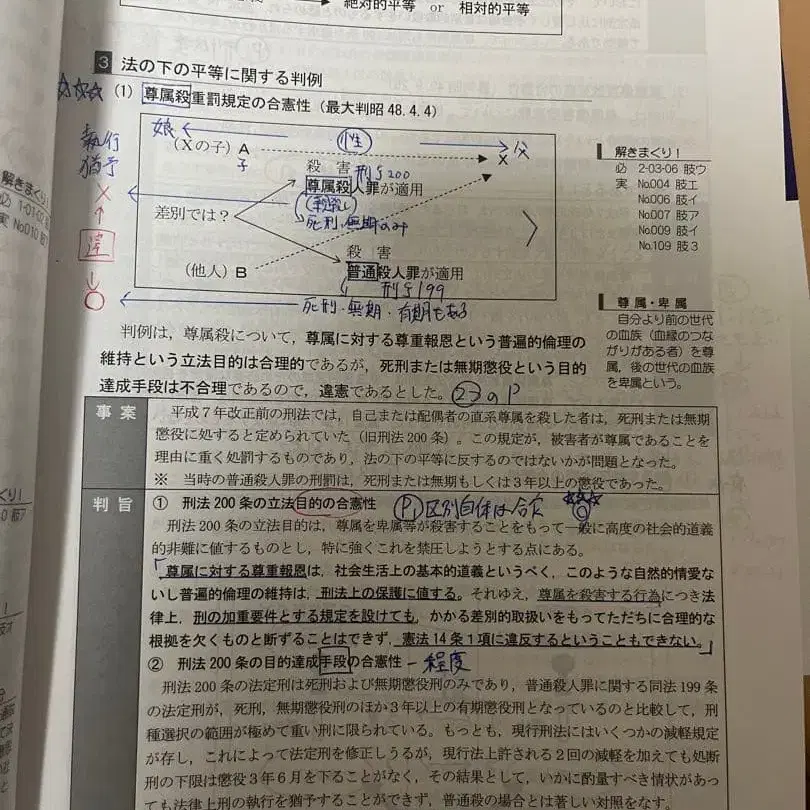 絶対的平等 or 相対的平等
3 法の下の平等に関する判例
☆☆☆ (1) 尊属殺重罰規定の合憲性(最大判昭48.4.4)
執行
猶予
×
違
○
娘
性
父
(Xの子)A
子
X
殺 害
刑§200
尊属殺人罪が適用
(親殺し)
死刑・無期のみ
差別では?
殺 害
(他人)B
普通殺人罪が適用
刑§199
死刑・無期・有期もある
解きまくり!
必 2-03-06 肢ウ
実 No.004 肢エ
No.006 肢イ
No.007 肢ア
No.009 肢イ
No.109 肢3
尊属・卑属
自分より前の世代
の血族(血縁のつな
がりがある者)を尊
属,後の世代の血族
を卑属という。
判例は,尊属殺について,尊属に対する尊重報恩という普遍的倫理の
維持という立法目的は合理的であるが,死刑または無期懲役という目的
達成手段は不合理であるので,違憲であるとした。
23のP
事案
平成7年改正前の刑法では,自己または配偶者の直系尊属を殺した者は,死刑または無期
懲役に処すると定められていた(旧刑法200条)。この規定が,被害者が尊属であることを
理由に重く処罰するものであり,法の下の平等に反するのではないかが問題となった。
※ 当時の普通殺人罪の刑罰は,死刑または無期もしくは3年以上の懲役であった。
判旨
① 刑法200条の立法目的の合憲性
区別自体は合
☆☆☆
刑法200条の立法目的は,尊属を卑属等が殺害することをもって一般に高度の社会的道義
的非難に値するものとし,特に強くこれを禁圧しようとする点にある。
「尊属に対する尊重報恩は,社会生活上の基本的道義というべく,このような自然的情愛な
いし普遍的倫理の維持は,刑法上の保護に値する。それゆえ,尊属を殺害する行為につき法
律上,刑の加重要件とする規定を設けても,かかる差別的取扱いをもってただちに合理的な
根拠を欠くものと断ずることはできず,憲法14条1項に違反するということもできない。」
② 刑法200条の目的達成手段の合憲性 - 程度
刑法200条の法定刑は死刑および無期懲役刑のみであり,普通殺人罪に関する同法199条
の法定刑が,死刑,無期懲役刑のほか3年以上の有期懲役刑となっているのと比較して,刑
種選択の範囲が極めて重い刑に限られている。もっとも,現行刑法にはいくつかの減軽規定
が存し,これによって法定刑を修正しうるが,現行法上許される2回の減軽を加えても処断
刑の下限は懲役3年6月を下ることがなく,その結果として,いかに酌量すべき情状があっ
ても法律上刑の執行を猶予することができず,普通殺の場合とは著しい対照をなす。